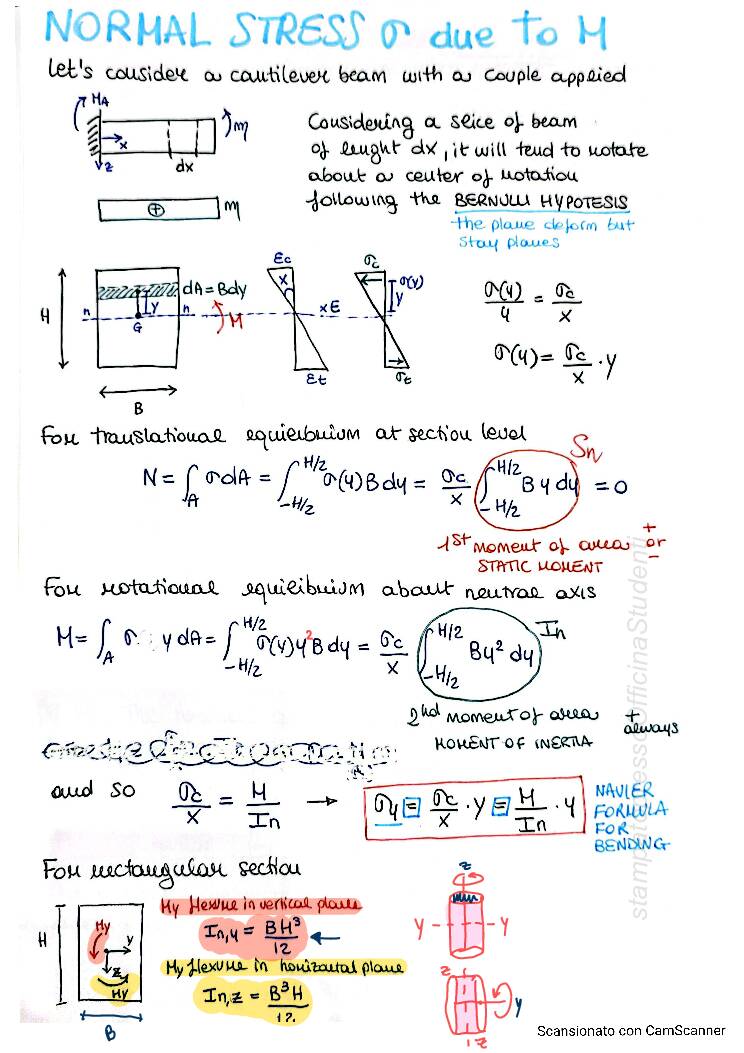 NORMAL STRESS σ due to M
let's consider a cantilever beam with a couple applied
MA
m
x
z
dx
Considering a slice of beam
of lenght dx, it will tend to rotate
about a center of rotation
following the BERNULLI HYPOTESIS
the plane deform but
stay planes
⊕ m
εc
σc
H
dA = Bdy
x
σ(y)
y
σ(y)/y = σc/x
n y n
G
M
xE
σ(y) = σc/x · y
εt
σt
B
For translational equilibrium at section level
Sn
N = ∫A σdA = ∫-H/2 H/2 σ(y) B dy = σc/x ∫-H/2 H/2 B y dy = 0
1st moment of area + or -
STATIC MOMENT
For rotational equilibrium about neutral axis
M = ∫A σ · y dA = ∫-H/2 H/2 σ(y) y² B dy = σc/x ∫-H/2 H/2 By² dy In
2nd moment of area + always
MOMENT OF INERTIA
and so σc/x = M/In → σy = σc/x · y = M/In · y
NAVIER
FORMULA
FOR
BENDING
For rectangular section
My flexure in vertical plane
H
My
y
In,y = BH³/12 ←
z
My
My flexure in horizontal plane
In,z = B³H/12
B
z
y y
z
y
z
stampato presso OfficinaStudenti
Scansionato con CamScanner